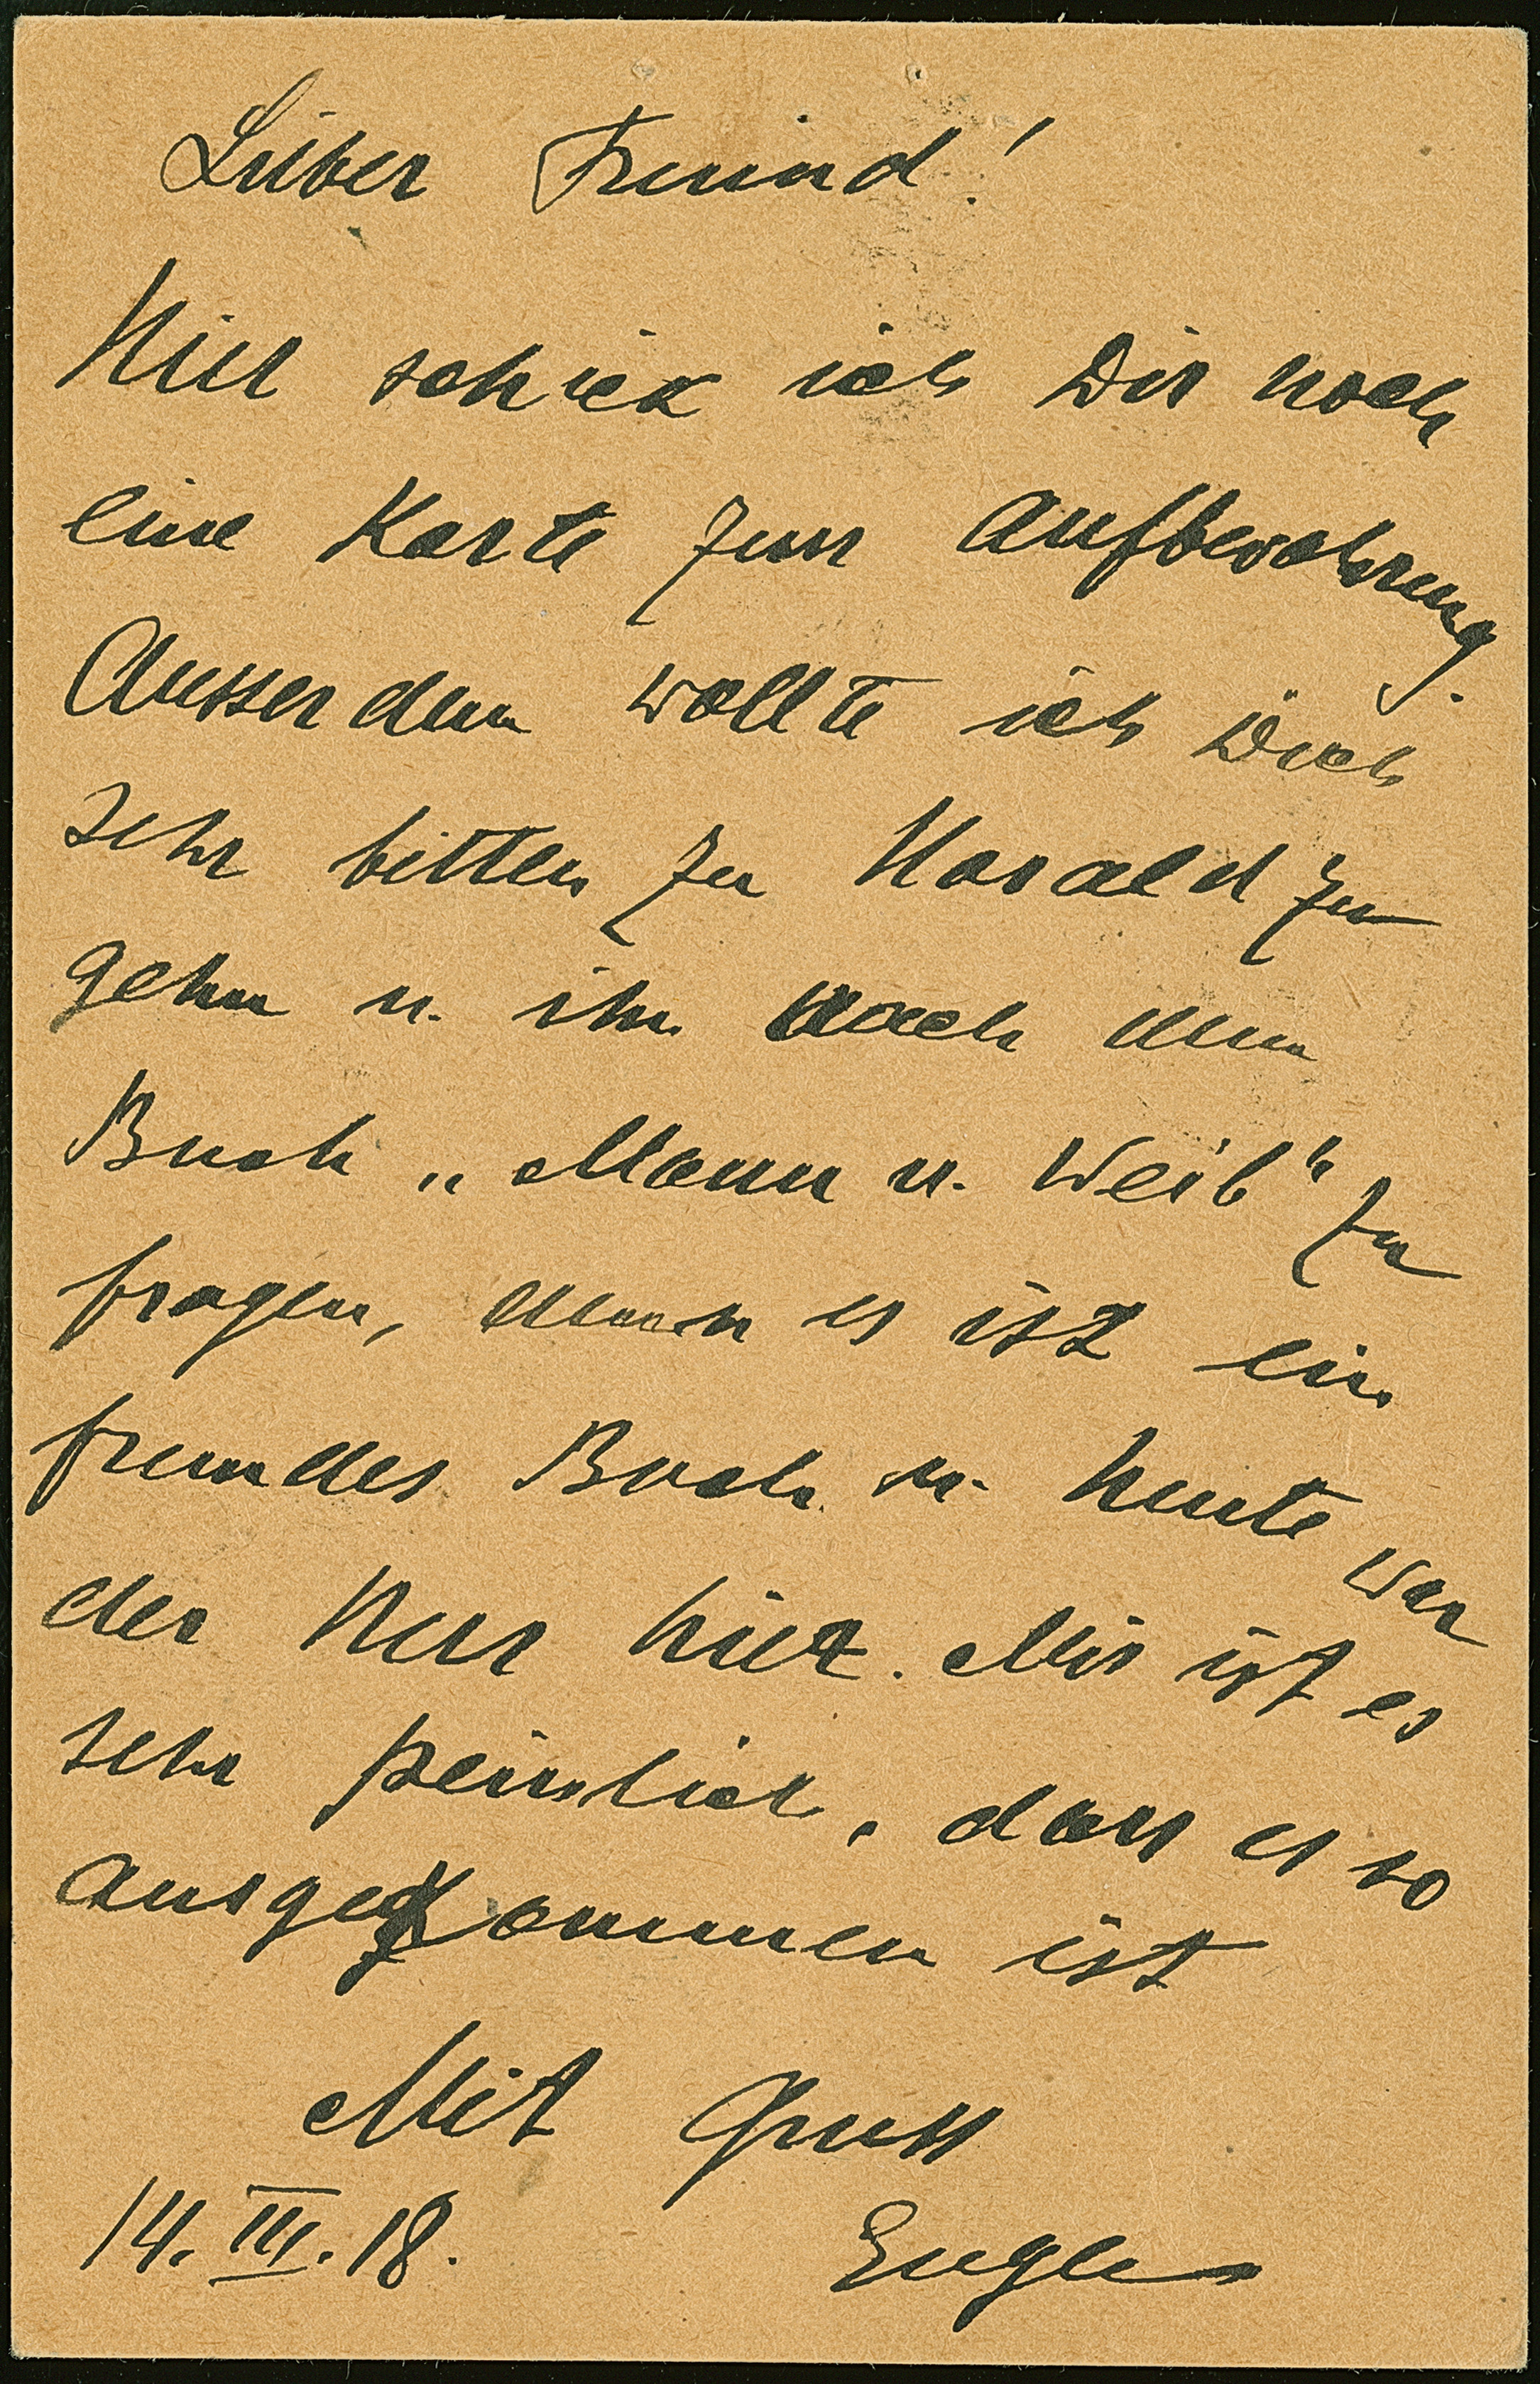 Lieber Freund!
Hier schick ich Dir noch
eine Karte zur Aufbewahrung.
Ausserdem wollte ich Dich
sehr bitten zu Harald zu
gehn u. ihn nach dem
Buch „Mann u. Weib“ zu
fragen, denn es ist ein
fremdes Buch u. heute war
der Herr hier. Mir ist es
sehr peinlich, dass es so
ausgekommen ist
Mit Gruss
14. III. 18.